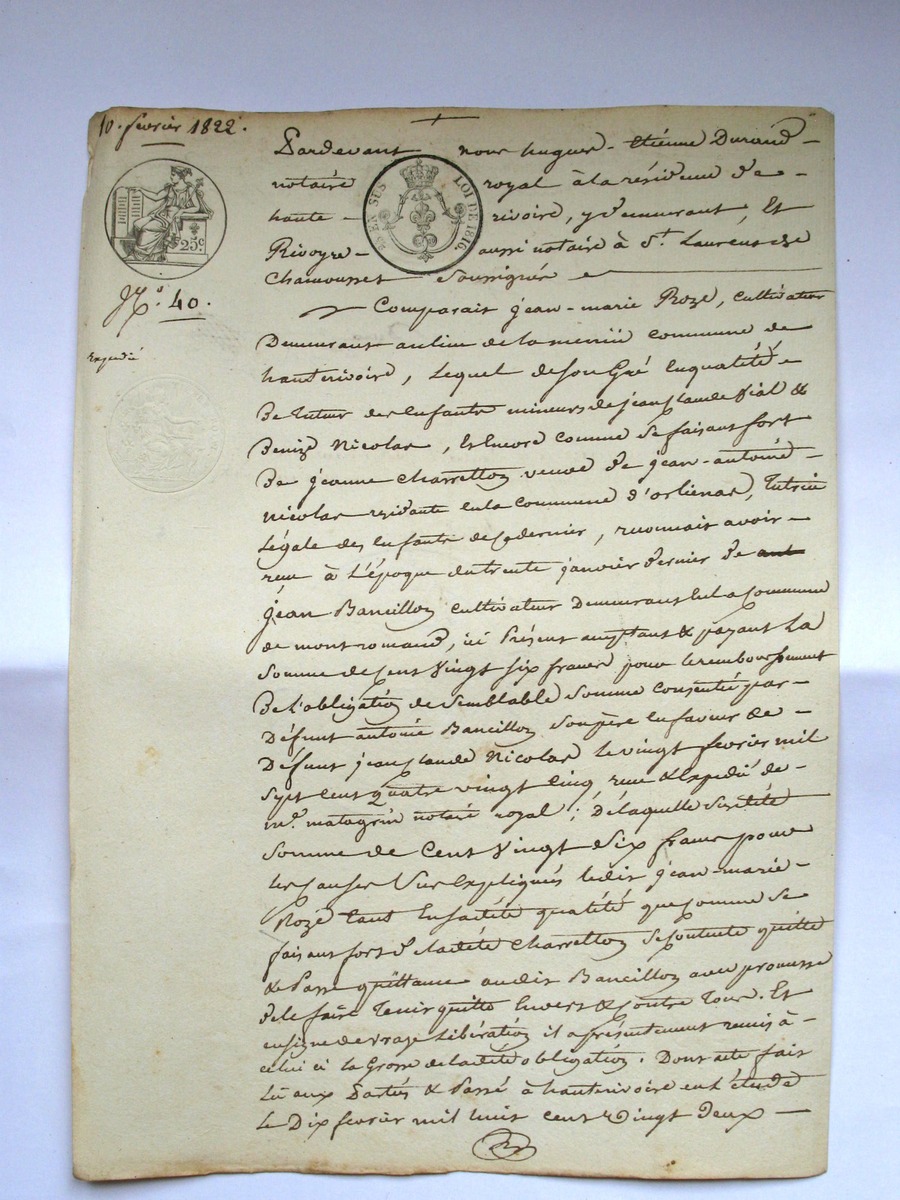 10. fevrier 1822.
Pardevant nous hugues-étiénne Durand-
notaire royal à la résidence de-
haute- rivoire, y demeurant, Et
Rivoyre- aussi notaire à St. Laurent de
Chamousset Soussignés
EN SUS
LOI DE 1816.
25c.
No. 40.
Expedié
Comparait jean-marie Roze, cultivateur
Demeurant au lieu de la commune de
hauterivoire, Lequel de son Gré En qualité-
De tuteur des Enfants mineurs de jean Claude Vial &
Denize Nicolas, Et Encore Comme Se faisant fort
De jeanne Charretton veuve de jean-antoine-
Nicolas residante En la Commune d'orlienas, Tutrice
Légale des Enfants de Ce dernier, reconnait avoir-
reçu à L'époque du trente janvier dernier de
jean Bancillon Cultivateur Demeurant En La Commune
de mont romand, ici Présent acceptant & payant La
Somme de Cent Vingt Six francs pour le remboursement
De L'obligation de Semblable Somme Consentie par-
Défunt antoine Bancillon Son père En faveur de-
Défunt jean Claude Nicolas le vingt fevrier mil
Sept Cent Quatre vingt Cinq, reçue & Expedié de-
me. matagrin notaire royal; De laquelle Susdite
Somme de Cent Vingt Six francs pour
Les Causes Sus Expliqués ledit jean-marie-
Roze tant En sadite qualité que Comme Se
faisant fort de ladite Charretton Se Contente quitte
& Passe quittance audit Bancillon avec promesse
de le faire Tenir quitte Envers & Contre Tous. Et
en signe de vraye Libération il a présentement remis à-
celui ci la Grosse de ladite obligation. Dont acte fait
Lu aux Parties & Passé à hauterivoire en L'étude
Le Dix fevrier mil huit Cent vingt Deux-